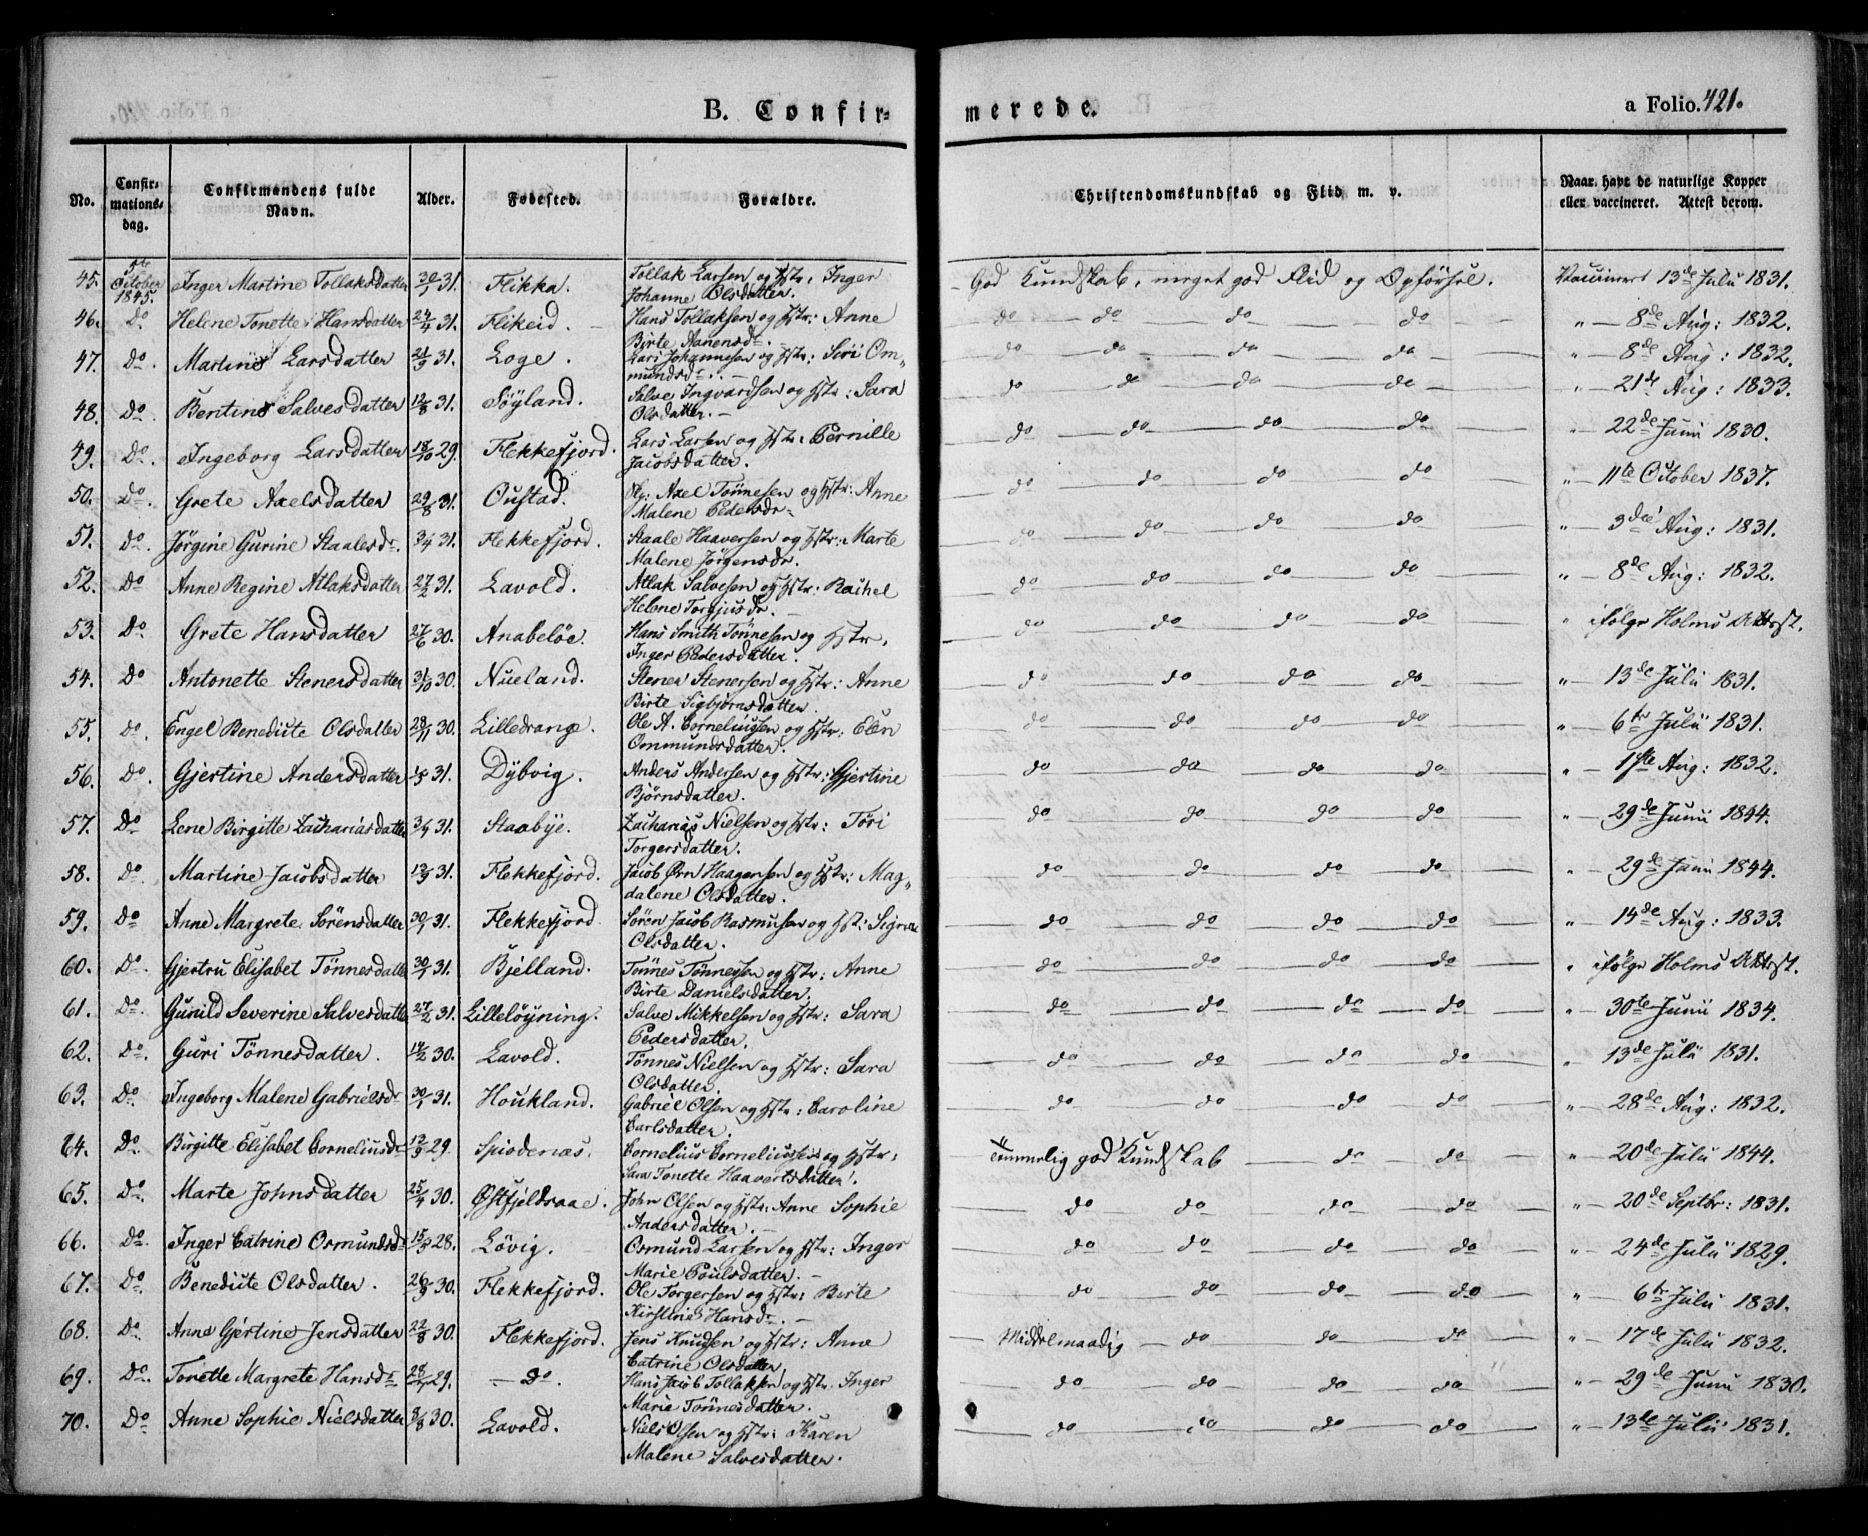 B. Confirmerede.
a Folio. 421.
No. Confirmationsdag. Confirmandens fulde Navn. Alder. Fødested. Forældre. Christendomskundskab og Flid m. v. Naar havt de naturlige Kopper eller vaccineret. Attest derom.
45. 5te October 1845. Inger Martine Tollaksdatter 30/1 31. Flikka. Tollak Larsen og Hstr. Inger Johanne Olsdatter. God Kundskab, meget god Flid og Opförsel. Vaccineret 13de Julii 1831.
46. Do Helene Tonette Hansdatter 24/4 31. Flikeid. Hans Tollaksen og Hstr: Anne Birte Aanensdr. do do do do " 8de Aug: 1832.
47. Do. Martine Larsdatter 21/9 31. Loge. Lars Johannesen og Hstr: Siri Ommundsdr. do do do do " 8de Aug: 1832.
48. Do. Bentine Salvesdatter 12/8 31. Söyland. Salve Ingvardsen og Hstr: Sara Olsdatter. do do do do " 21de Aug: 1833.
49. Do. Ingeborg Larsdatter 18/10 29. Flekkefjord. Lars Larsen og Hstr: Pernille Jacobsdatter. do do do do " 22de Junii 1830.
50. Do. Grete Axelsdatter 29/8 31. Oustad. Axel Tönnesen og Hstr: Anne Malene Pedersdr. do do do do " 11te October 1837.
51. Do. Jörgine Gurine Staalesdr. 31. Flekkefjord. Staale Haaversen og Hstr: Marte Malene Jörgensdr. do do do do " 3die Aug: 1831.
52. Do Anne Regine Atlaksdatter 27/2 31. Lavold. Atlak Salvesen og Hstr: Rachel Helene Torgjusdr. do do do do " 8de Aug: 1832.
53. Do. Grete Hansdatter 27/6 30. Anabelöe. Hans Smith Tönnesen og Hstr. Inger Pedersdatter. do do do do " ifölge Holms Attest.
54. Do Antonette Stenersdatter 31/10 30. Nueland. Stener Stenersen og Hstr: Anne Birte Sigbjörnsdatter. do do do do " 13de Julii 1831.
55. Do. Engel Benedicte Olsdatter 28/11 30. Lilledrange. Ole A. Corneliussen og Hstr: Elen Ommundsdatter. do do do do " 6te Julii 1831.
56. Do. Gjertine Andersdatter 31. Dybvig. Anders Andersen og Hstr: Gjertine Björnsdatter. do do do do " 1ste Aug: 1832.
57. Do Lene Birgitte Zachariasdatter 31. Staabye. Zacharias Nielsen og Hstr: Töri Torgersdatter. do do do do " 29de Junii 1844.
58. Do. Martine Jacobsdatter 13/9 31. Flekkefjord. Jacob Ørn Haagensen og Hstr: Magdalene Olsdatter. do do do do " 29de Junii 1844.
59. Do Anne Margrete Sörensdatter 30/1 31. Flekkefjord Sören Jacob Rasmusen og Hst: Signe Olsdatter. do do do do " 14de Aug: 1833.
60. Do. Gjertru Elisabet Tönnesdatter 30/1 31. Bjelland. Tönnes Tönnessen og Hstr: Anne Birte Danielsdatter. do do do do " ifölge Holms Attest.
61. Do. Gunild Severine Salvesdatter 27/2 31. Lillelöyning. Salve Mikkelsen og Hstr: Sara Pedersdatter. do do do do " 30te Junii 1834.
62. Do. Guri Tönnesdatter. 14/2 30. Lavold. Tönnes Nielsen og Hstr: Sara Olsdatter. do do do do " 13de Julii 1831.
63. Do. Ingeborg Malene Gabrielsdr 30/1 31. Houkland. Gabriel Olsen og Hstr: Caroline Carlsdatter. do do do do " 28de Aug: 1832.
64. Do. Birgitte Elisabet Corneliusdr 29. Spiodenæs. Cornelius Corneliussen og Hstr: Sara Tonette Haavartsdatter. Temmelig god Kundskab do do " 20de Julii 1844.
65. Do. Marte Johnsdatter 25/4 30. Østfjeldraae. John Olsen og Hstr: Anne Sophie Andersdatter. do do do do " 20de Septbr: 1831.
66. Do. Inger Catrine Osmundsdr 28. Lövig. Osmund Larsen og Hstr: Inger Marie Poulsdatter. do do do do " 24de Julii 1829.
67. Do. Benedicte Olsdatter. 26/9 30. Flekkefjord. Ole Torgersen og Hstr: Birte Kirstine Hansdr. do do do do " 6te Julii 1831.
68. Do. Anne Gjertine Jensdatter 22/8 30. Flekkefjord. Jens Knudsen og Hstr: Anne Catrine Olsdatter. Middelmaadig do do do " 17de Julii 1832.
69. Do. Tonette Margrete Hansdr 29. Do. Hans Jacob Tollaksen og Hstr. Inger Marie Tönnesdatter. do do do do " 29de Junii 1830.
70. Do Anne Sophie Nielsdatter 30. Lavold. Niels Olsen og Hstr: Karen Malene Salvesdatter. do do do do " 13de Julii 1831.